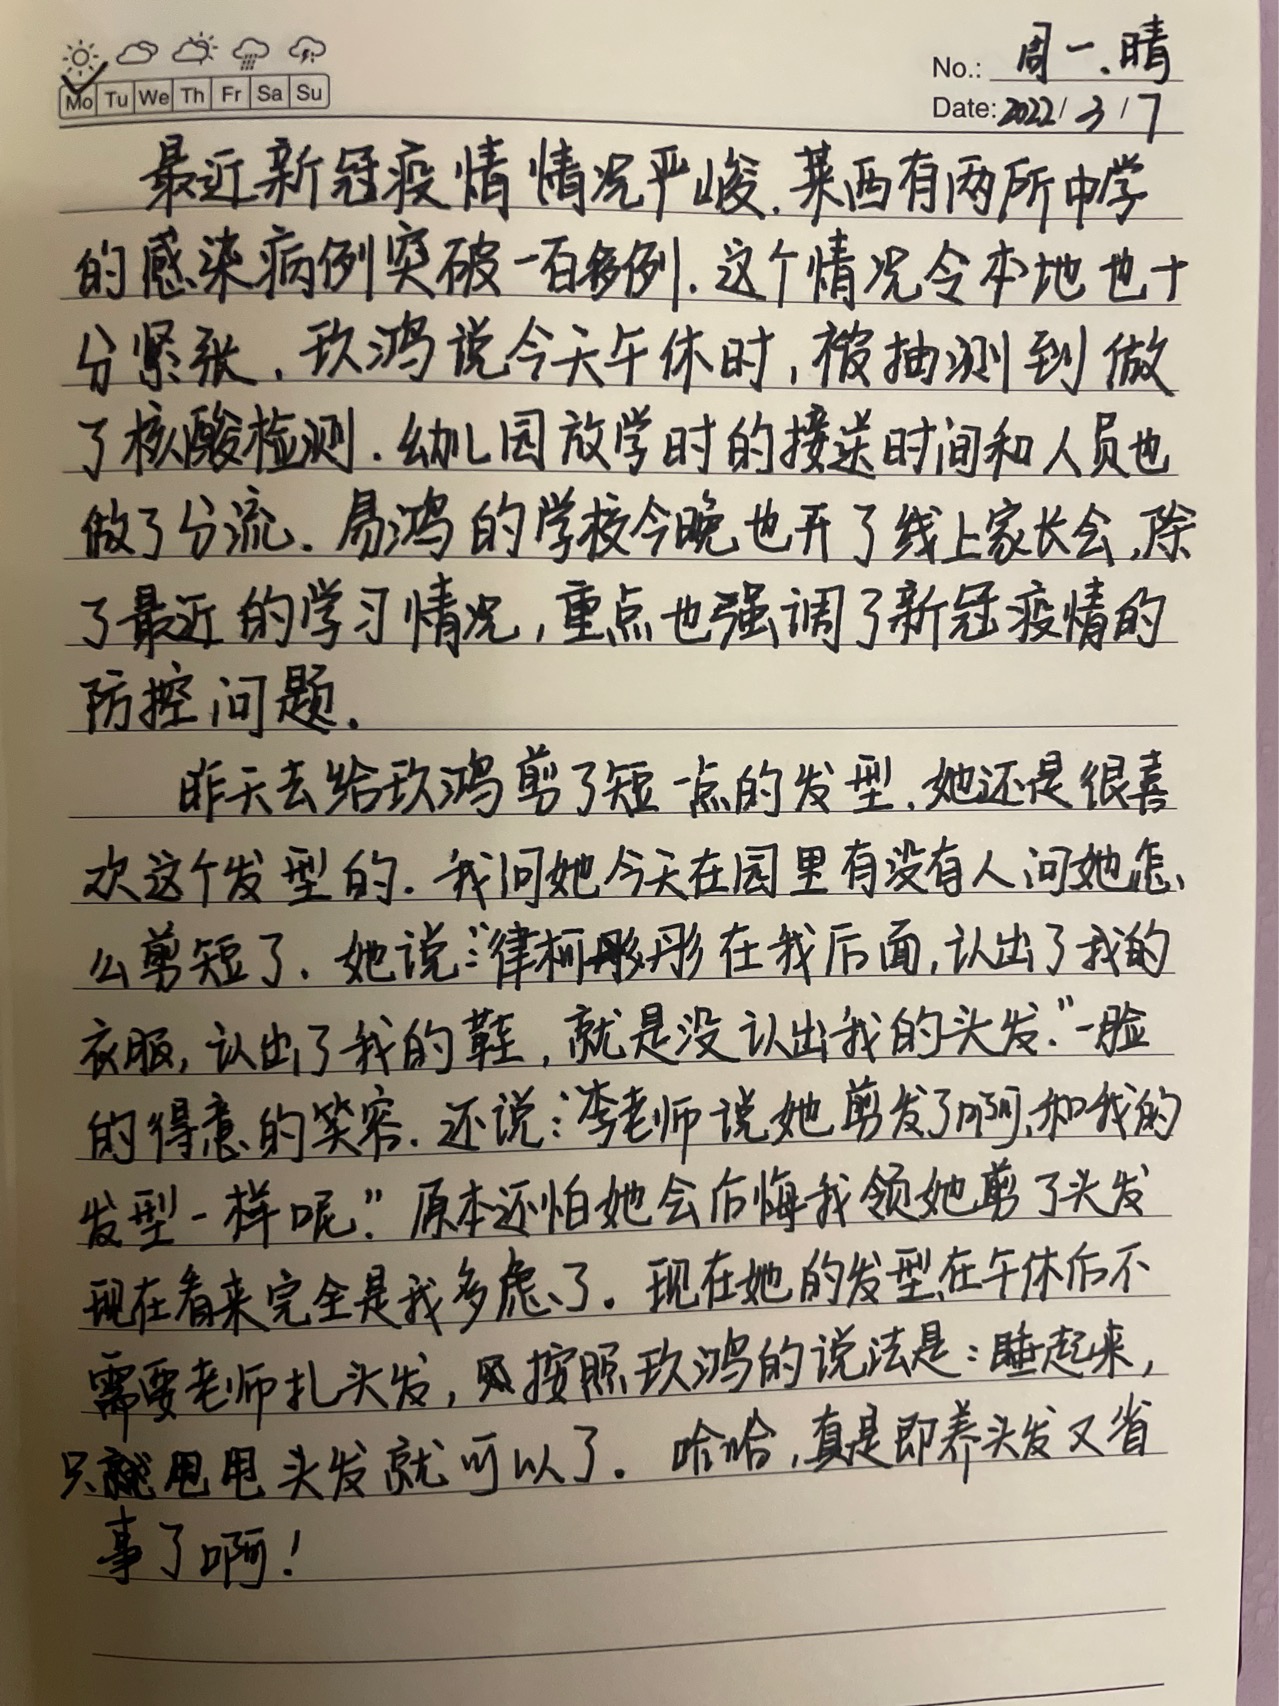 No.: 周一.晴
Mo Tu We Th Fr Sa Su
Date: 2022/3/7
最近新冠疫情情况严峻.莱西有两所中学
的感染病例突破一百多例.这个情况令本地也十
分紧张.玖鸿说今天午休时,被抽测到做
了核酸检测.幼儿园放学时的接送时间和人员也
做了分流.易鸿的学校今晚也开了线上家长会,除
了最近的学习情况,重点也强调了新冠疫情的
防控问题.
昨天去给玖鸿剪了短一点的发型.她还是很喜
欢这个发型的.我问她今天在园里有没有人问她怎
么剪短了.她说:“律柯彤彤在我后面,认出了我的
衣服,认出了我的鞋,就是没认出我的头发.”一脸
的得意的笑容.还说:“李老师说她剪发了啊,和我的
发型一样呢”.原本还怕她会后悔我领她剪了头发
现在看来完全是我多虑了.现在她的发型在午休后不
需要老师扎头发,按照玖鸿的说法是:睡起来,
只甩甩头发就可以了.哈哈,真是即养头发又省
事了啊!